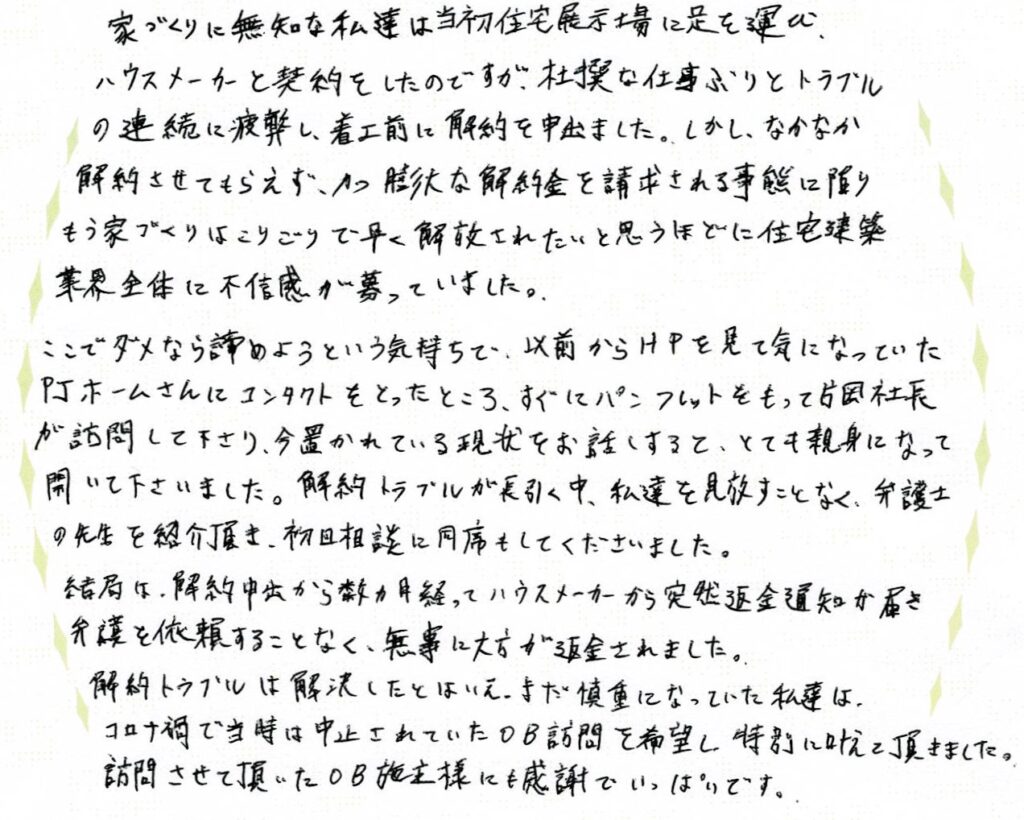 家づくりに無知な私達は当初住宅展示場に足を運び、
ハウスメーカーと契約をしたのですが、杜撰な仕事ぶりとトラブル
の連続に疲弊し、着工前に解約を申出ました。しかし、なかなか
解約させてもらえず、かつ膨大な解約金を請求される事態に陥り
もう家づくりはこりごりで早く解放されたいと思うほどに住宅建築
業界全体に不信感が募っていました。
ここでダメなら諦めようという気持ちで、以前からHPを見て気になっていた
PJホームさんにコンタクトをとったところ、すぐにパンフレットをもって片岡社長
が訪問して下さり、今置かれている現状をお話しすると、とても親身になって
聞いて下さいました。解約トラブルが長引く中、私達を見放すことなく、弁護士
の先生を紹介頂き、初回相談に同席もしてくださいました。
結局は、解約申出から数カ月経ってハウスメーカーから突然返金通知が届き
弁護を依頼することなく、無事に大方が返金されました。
解約トラブルは解決したとはいえ、まだ慎重になっていた私達は、
コロナ禍で当時は中止されていたOB訪問を希望し、特別に叶えて頂きました。
訪問させて頂いたOB施主様にも感謝でいっぱいです。